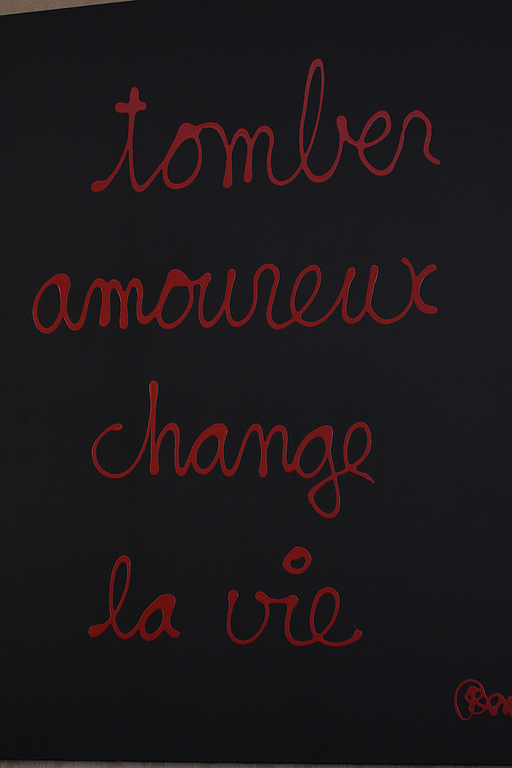 tomber
amoureux
change
la vie